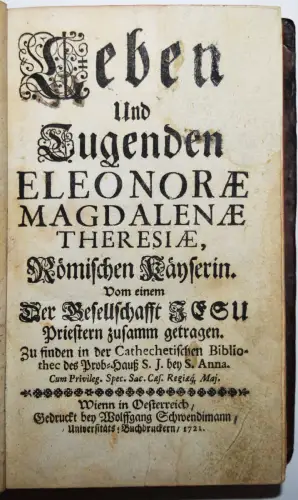 Leben
Und
Tugenden
ELEONORÆ
MAGDALENÆ
THERESIÆ,
Römischen Käyserin.
Vom einem
Der Gesellschafft JESU
Priestern zusamm getragen.
Zu finden in der Cathechetischen Biblio-
thec des Prob-Hauß S. J. bey S. Anna.
Cum Privileg. Spec. Sac. Cæs. Regiæq́; Maj.
Wienn in Oesterreich/
Gedruckt bey Wolffgang Schwendimann/
Universitäts-Buchdruckern/ 1721.